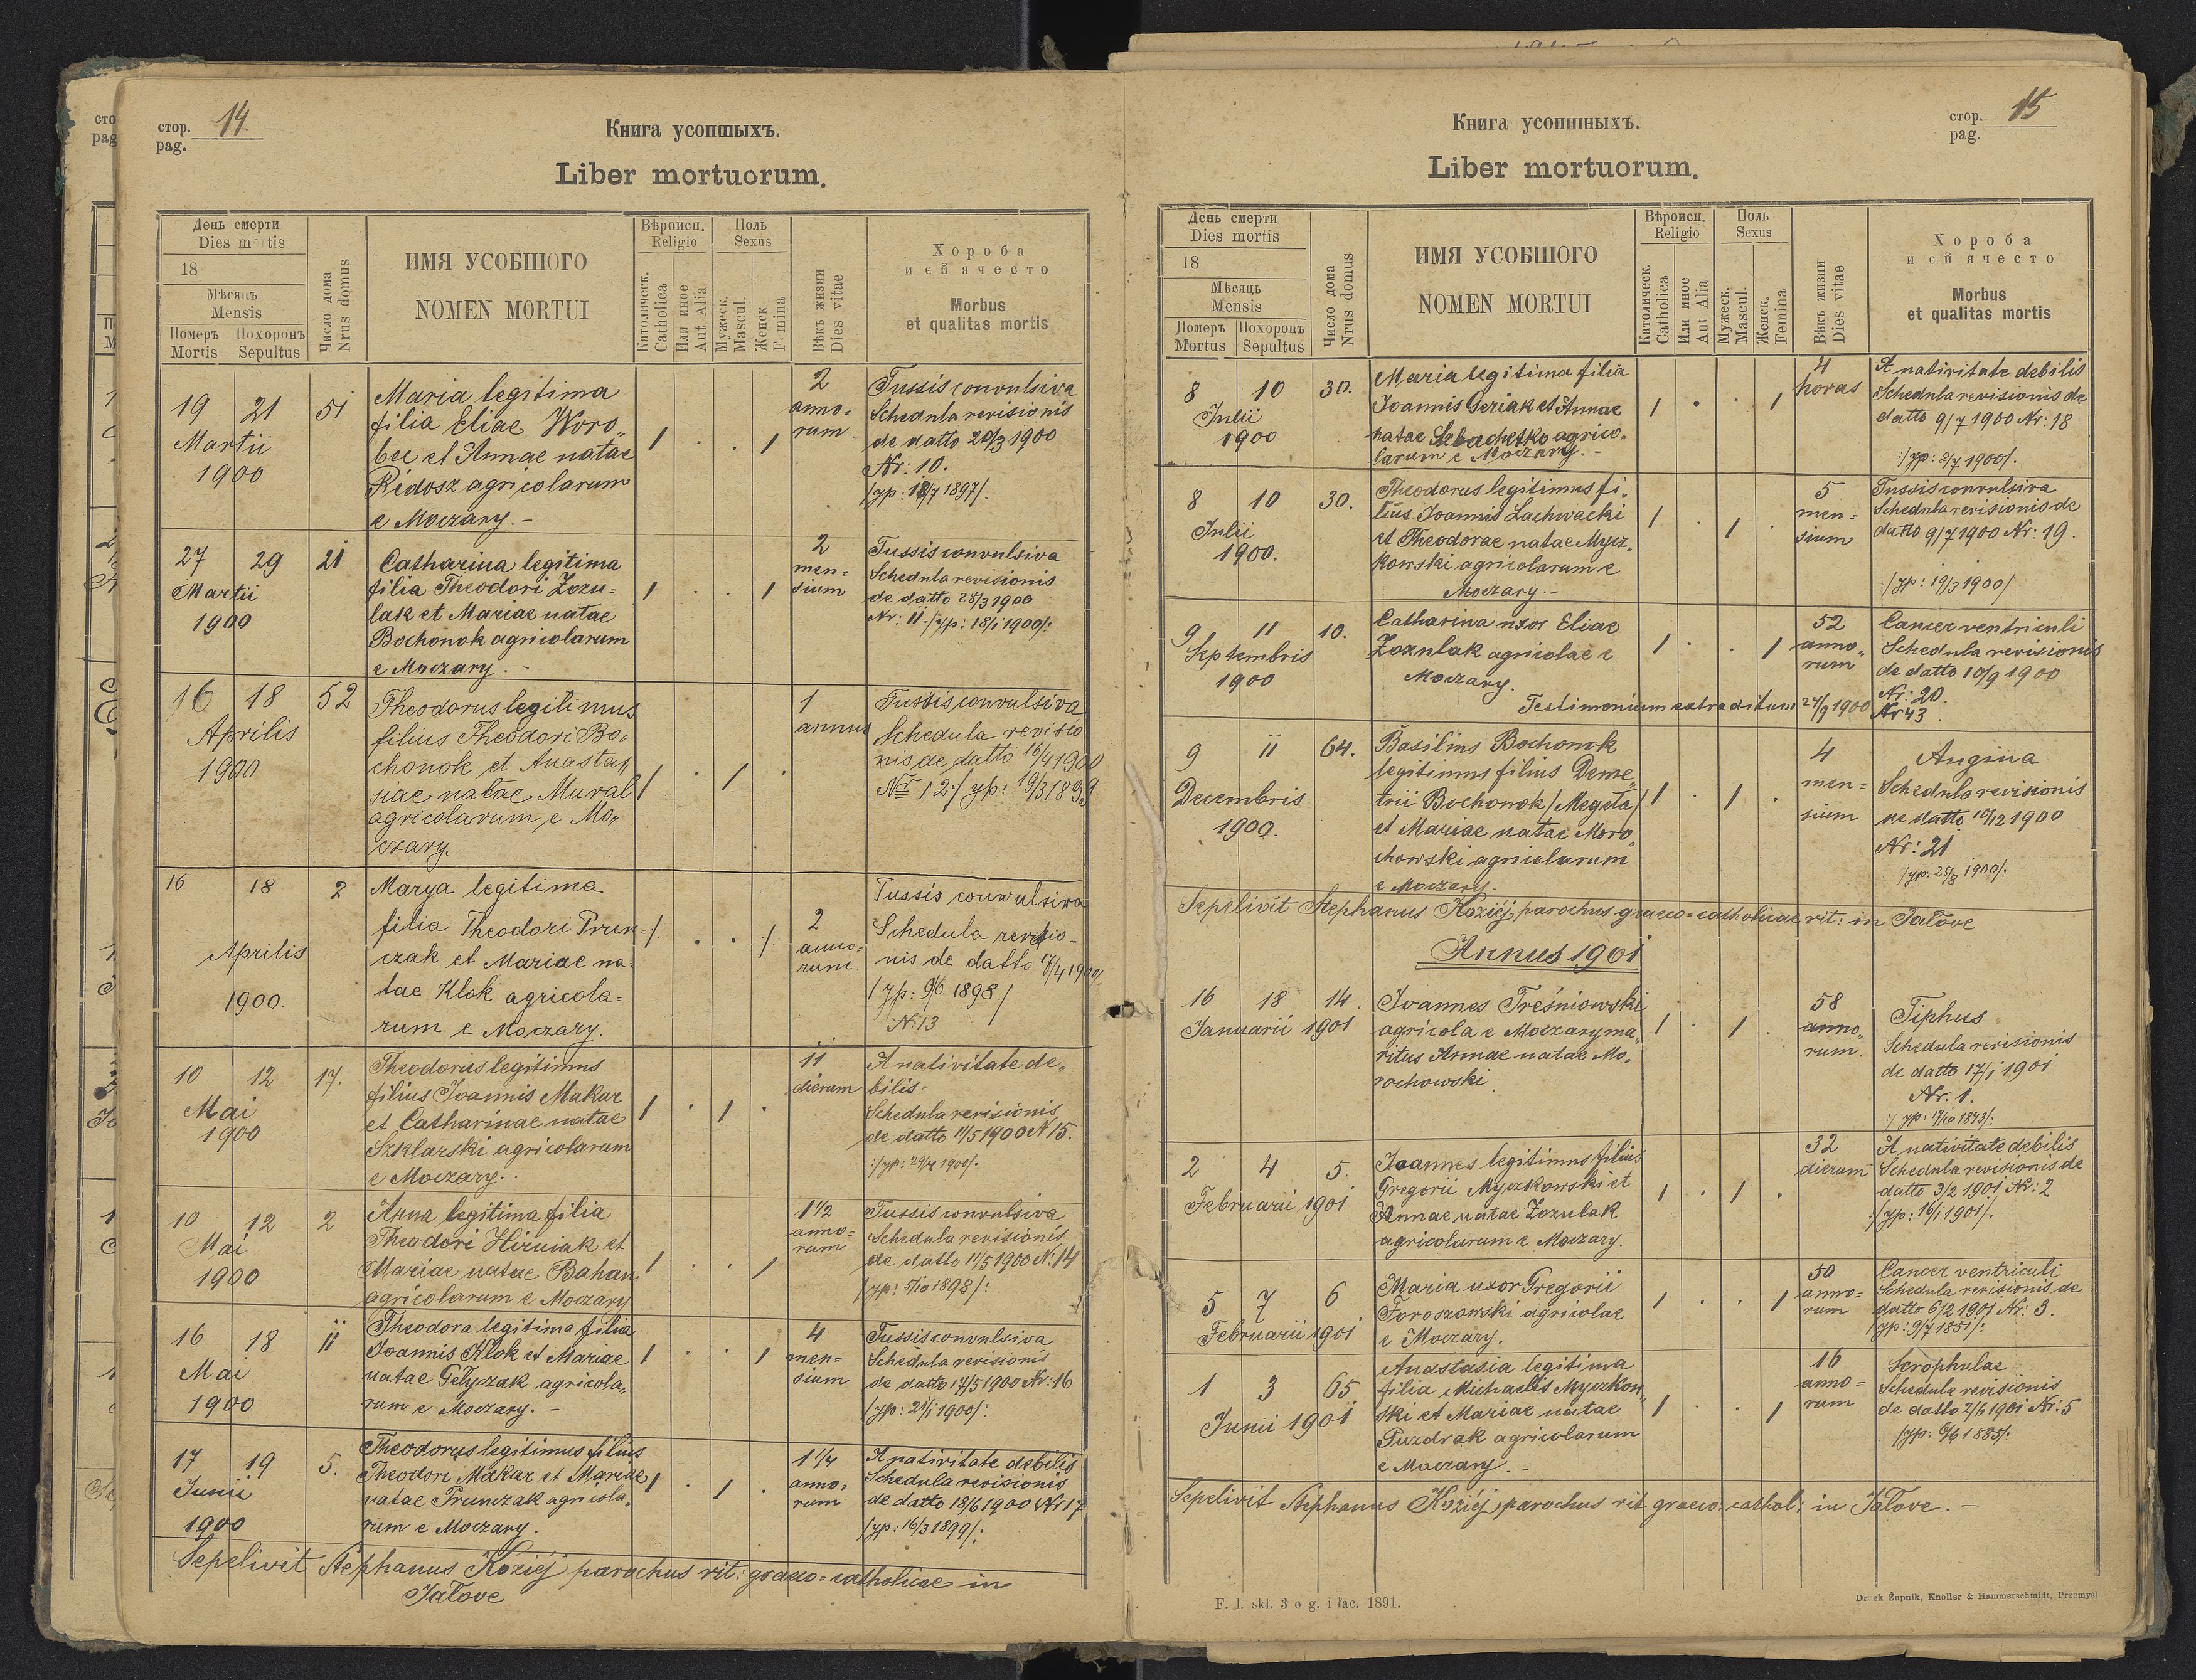 стор. 14.
pag.
Книга усопшыхъ.
Liber mortuorum.
День смерти
Dies mortis
18
Мѣсяцъ
Mensis
Померъ Похоронъ
Mortis Sepultus
Число дома
Nrus domus
ИМЯ УСОБШОГО
NOMEN MORTUI
Вѣроисп.
Religio
Католическ.
Catholica
Или иное
Aut Alia
Поль
Sexus
Мужеск.
Mascul.
Женск
Femina
Вѣкъ жизни
Dies vitae
Хороба
и єй ячесто
Morbus
et qualitas mortis
19 21 51
Martii
1900
Maria legitima
filia Eliae Woro„
bec et Annae natae
Ridosz agricolarum
e Moczary.-
1 . . 1
2
anno=
rum
Tussis convulsiva
Schedula revisionis
de datto 20/3 1900
Nr: 10.
/yp: 18/7 1897/.
27 29 21
Martii
1900
Catharina legitima
filia Theodori Zozu=
lak et Mariae natae
Bochonok agricolarum
e Moczary. -
1 . . 1
2
men=
sium
Tussis convulsiva
Schedula revisionis
de datto 28/3 1900
Nr: 11. /yp: 18/1 1900/:
16 18 52
Aprilis
1900
Theodorus legitimus
filius Theodori Bo„
chonok et Anasta„
siae natae Mural
agricolarum e Mo„
czary.
1 . 1 .
1
annus
Tussis convulsiva
Schedula revisio
nis de datto 16/4 1900
Nr 12 / yp: 19/3 1899
16 18 2
Aprilis
1900.
Marya legitima
filia Theodori Prun=
czak et Mariae na=
tae Klok agricola=
rum e Moczary.
1 . . 1
2
anno=
rum.
Tussis convulsiva
Schedula revisio-
nis de datto 17/4 1900
/yp: 9/6 1898./
N:13
10 12 17.
Mai
1900
Theodorus legitimus
filius Ioannis Makar
et Catharinae natae
Szklarski agricolarum
e Moczary.
1 . 1 .
11
dierum
A nativitate de„
bilis-
Schedula revisionis
de datto 11/5 1900 N 15.
:/yp: 29/4 1900/.
10 12 2
Mai
1900
Anna legitima filia
Theodori Hirniak et
Mariae natae Bahan
agricolarum e Moczary
1 . . 1
1 1/2
anno=
rum
Tussis convulsiva
Schedula revisionis
de datto 11/5 1900 N: 14
/yp: 5/10 1898/:
16 18 11
Mai
1900
Theodora legitima filia
Ioannis Klok et Mariae
natae Gełyczak agricola„
rum e Moczary. -
1 . . 1
4
men=
sium
Tussis convulsiva
Schedula revisionis
de datto 17/5 1900 Nr: 16
/yp: 21/1 1900/:
17 19 5.
Junii
1900
Theodorus legitimus filius
Theodori Makar et Mariae
natae Prunczak agricola„
rum e Moczary.
1 . 1 .
1 1/4
anno=
rum
A nativitate debilis
Schedula revisionis
de datto 18/6 1900 Nr 17
/yp: 16/3 1899/:
Sepelivit Stephanus Koziej parochus rit: graeco=catholicae in
Jałove
Книга усопшныхъ.
Liber mortuorum.
стор. 15
pag.
День смерти
Dies mortis
18
Мѣсяць
Mensis
Померъ Похоронъ
Mortus Sepultus
Число дома
Nrus domus
ИМЯ УСОБШОГО
NOMEN MORTUI
Вѣроисп.
Religio
Католическ.
Catholica
Или иное
Aut Alia
Поль
Sexus
Мужеск.
Mascul.
Женск,
Femina
Вѣкъ жизни
Dies vitae
Хороба
и єй ячесто
Morbus
et qualitas mortis
8 10 30.
Julii
1900
Maria legitima filia
Ioannis Geriak et Annae
natae agrico„
larum e Moczary. -
1 . . 1
4
horas
A nativitate debilis
Schedula revisionis de
datto 9/7 1900 Nr: 18
:/yp: 8/7 1900/.
8 10 30.
Julii
1900.
Theodorus legitimus fi„
lius Ioannis Lachwacki
et Theodorae natae Mycz„
kowski agricolarum e
Moczary.-
1 . 1 .
5
men=
sium
Tussis convulsiva
Schedula revisionis de
datto 9/7 1900 Nr: 19.
:/yp: 19/3 1900/
9 11 10.
Septembris
1900
Catharina uxor Eliae
Zozulak agricolae e
Moczary.
1 . . 1
52
anno„
rum
Cancer ventriculi
Schedula revisionis
de datto 10/9 1900
Nr: 20.
Testimonium extraditum 24/9 1900 Nr 43.
9 11 64.
Decembris
1900.
Basilius Bochonok
legitimus filius Deme„
trii Bochonok /Megeta/
et Mariae natae Moro„
chowski agricolarum
e Moczary.
1 . 1 .
4
men=
sium
Angina
Schedula revisionis
de datto 10/12 1900
Nr: 21
/yp: 25/8 1900/:
Sepelivit Stephanus Koziej parochus graeco=catholicae rit: in Jałove
Annus 1901
16 18 14.
Januarii 1901
Ioannes Treśniowski
agricola e Moczary ma„
ritus Annae natae Mo„
rochowski
1 . 1 .
58
anno„
rum.
Tiphus
Schedula revisionis
de datto 17/1 1901
Nr: 1.
:/yp: 17/10 1843/:
2 4 5.
Februarii 1901
Ioannes legitimus filius
Gregorii Myczkowski et
Annae natae Zozulak
agricolarum e Moczary.
1 . 1 .
32
dierum
A nativitate debilis
Schedula revisionis de
datto 3/2 1901 Nr: 2
:/yp: 16/1 1901/.
5 7 6
Februarii 1901
Maria uxor Gregorii
Toroszowski agricolae
e Moczary.
1 . . 1
50
anno=
rum
Cancer ventriculi
Schedula revisionis de
datto 6/2 1901 Nr: 3.
/yp: 9/7 1851/:
1 3 65
Junii 1901
Anastasia legitima
filia Michaelis Myczkow„
ski et Mariae natae
Puzdrak agricolarum
e Moczary. -
1 . . 1
16
anno=
rum
Scrophulae
Schedula revisionis
de datto 2/6 1901 Nr: 5
/yp: 6/6 1885/:
Sepelivit Stephanus Koziej parochus rit. graeco: cathol: in Jałove. -
F. l. skł. 3 o g. i łac. 1891.
Druk Żupnik, Knoller & Hammerschmidt, Przemyśl